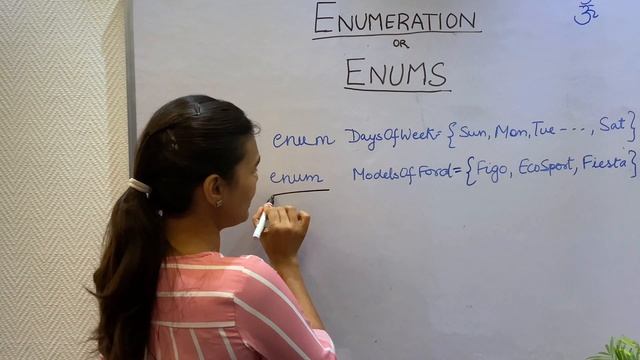 ॐ
ENUMERATION
OR
ENUMS
enum DaysOfWeek={Sun, Mon, Tue ---, Sat}
enum ModelsOfFord={Figo, EcoSport, Fiesta}